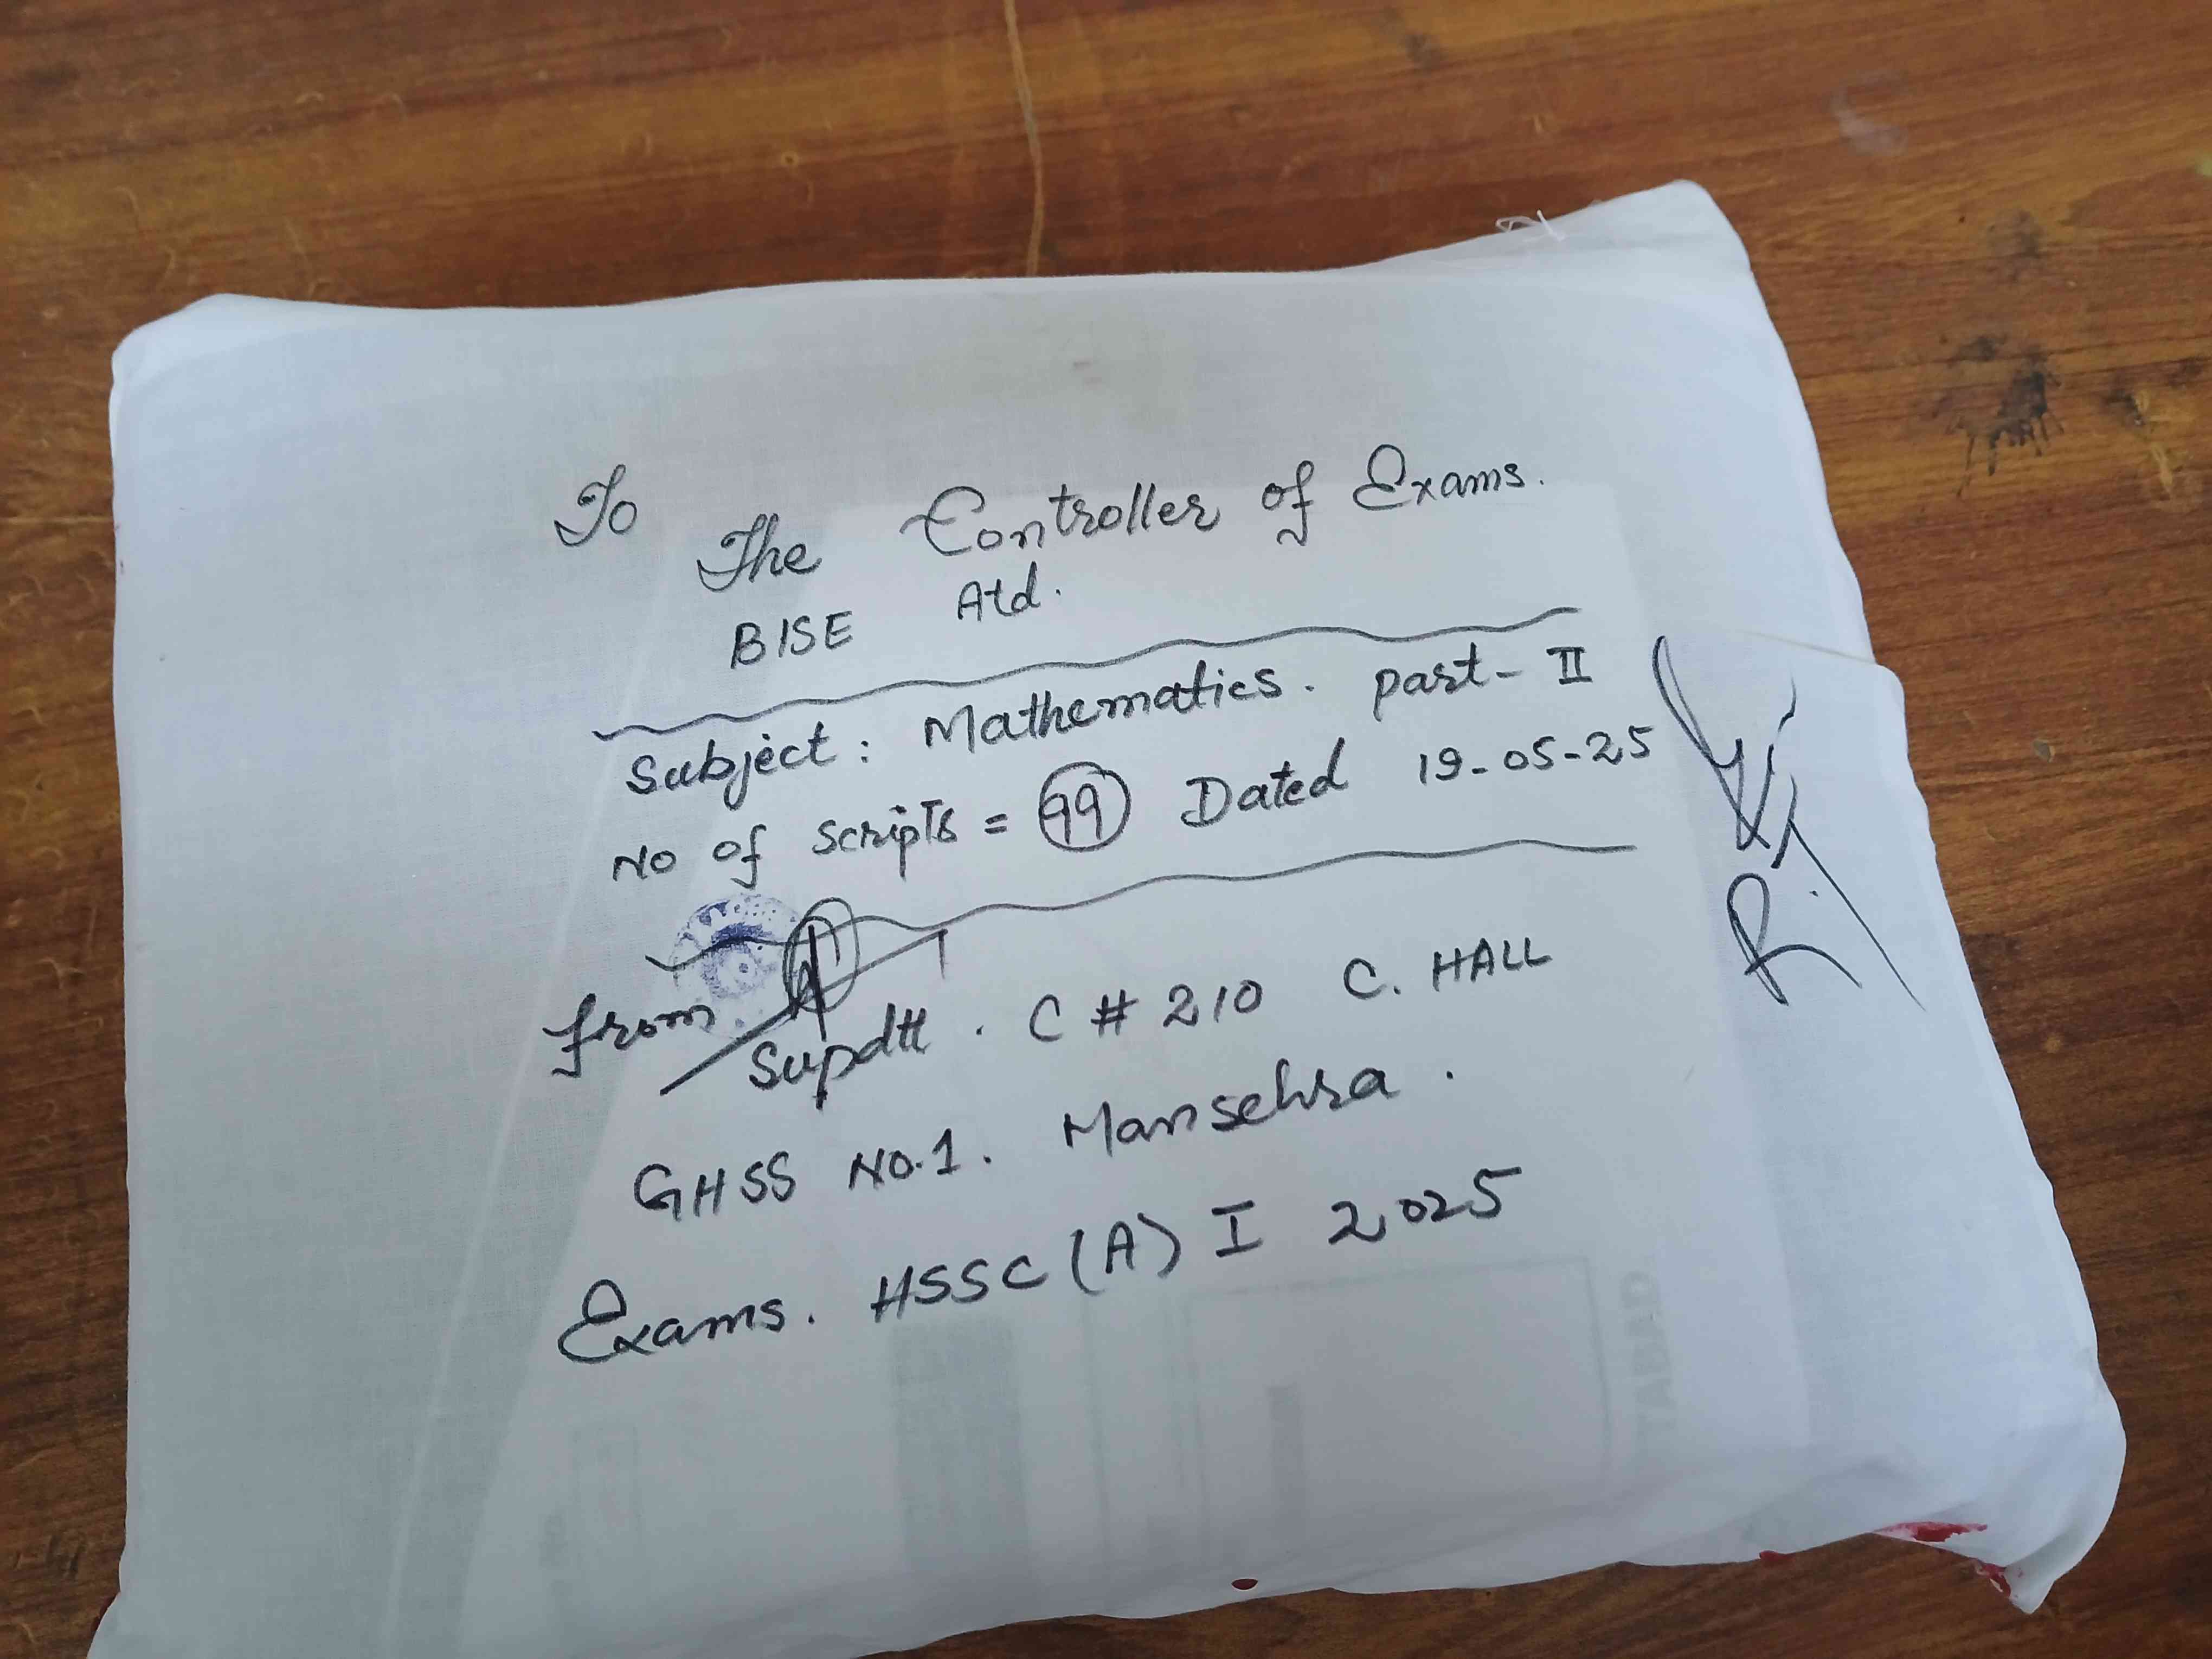 To
The Controller of Exams.
BISE Atd.
Subject: Mathematics. part-II
No of scripts = 99 Dated 19-05-25
from
Supdtt. C # 210 C. HALL
GHSS No.1. Mansehra.
Exams. HSSC (A) I 2025
TABAD